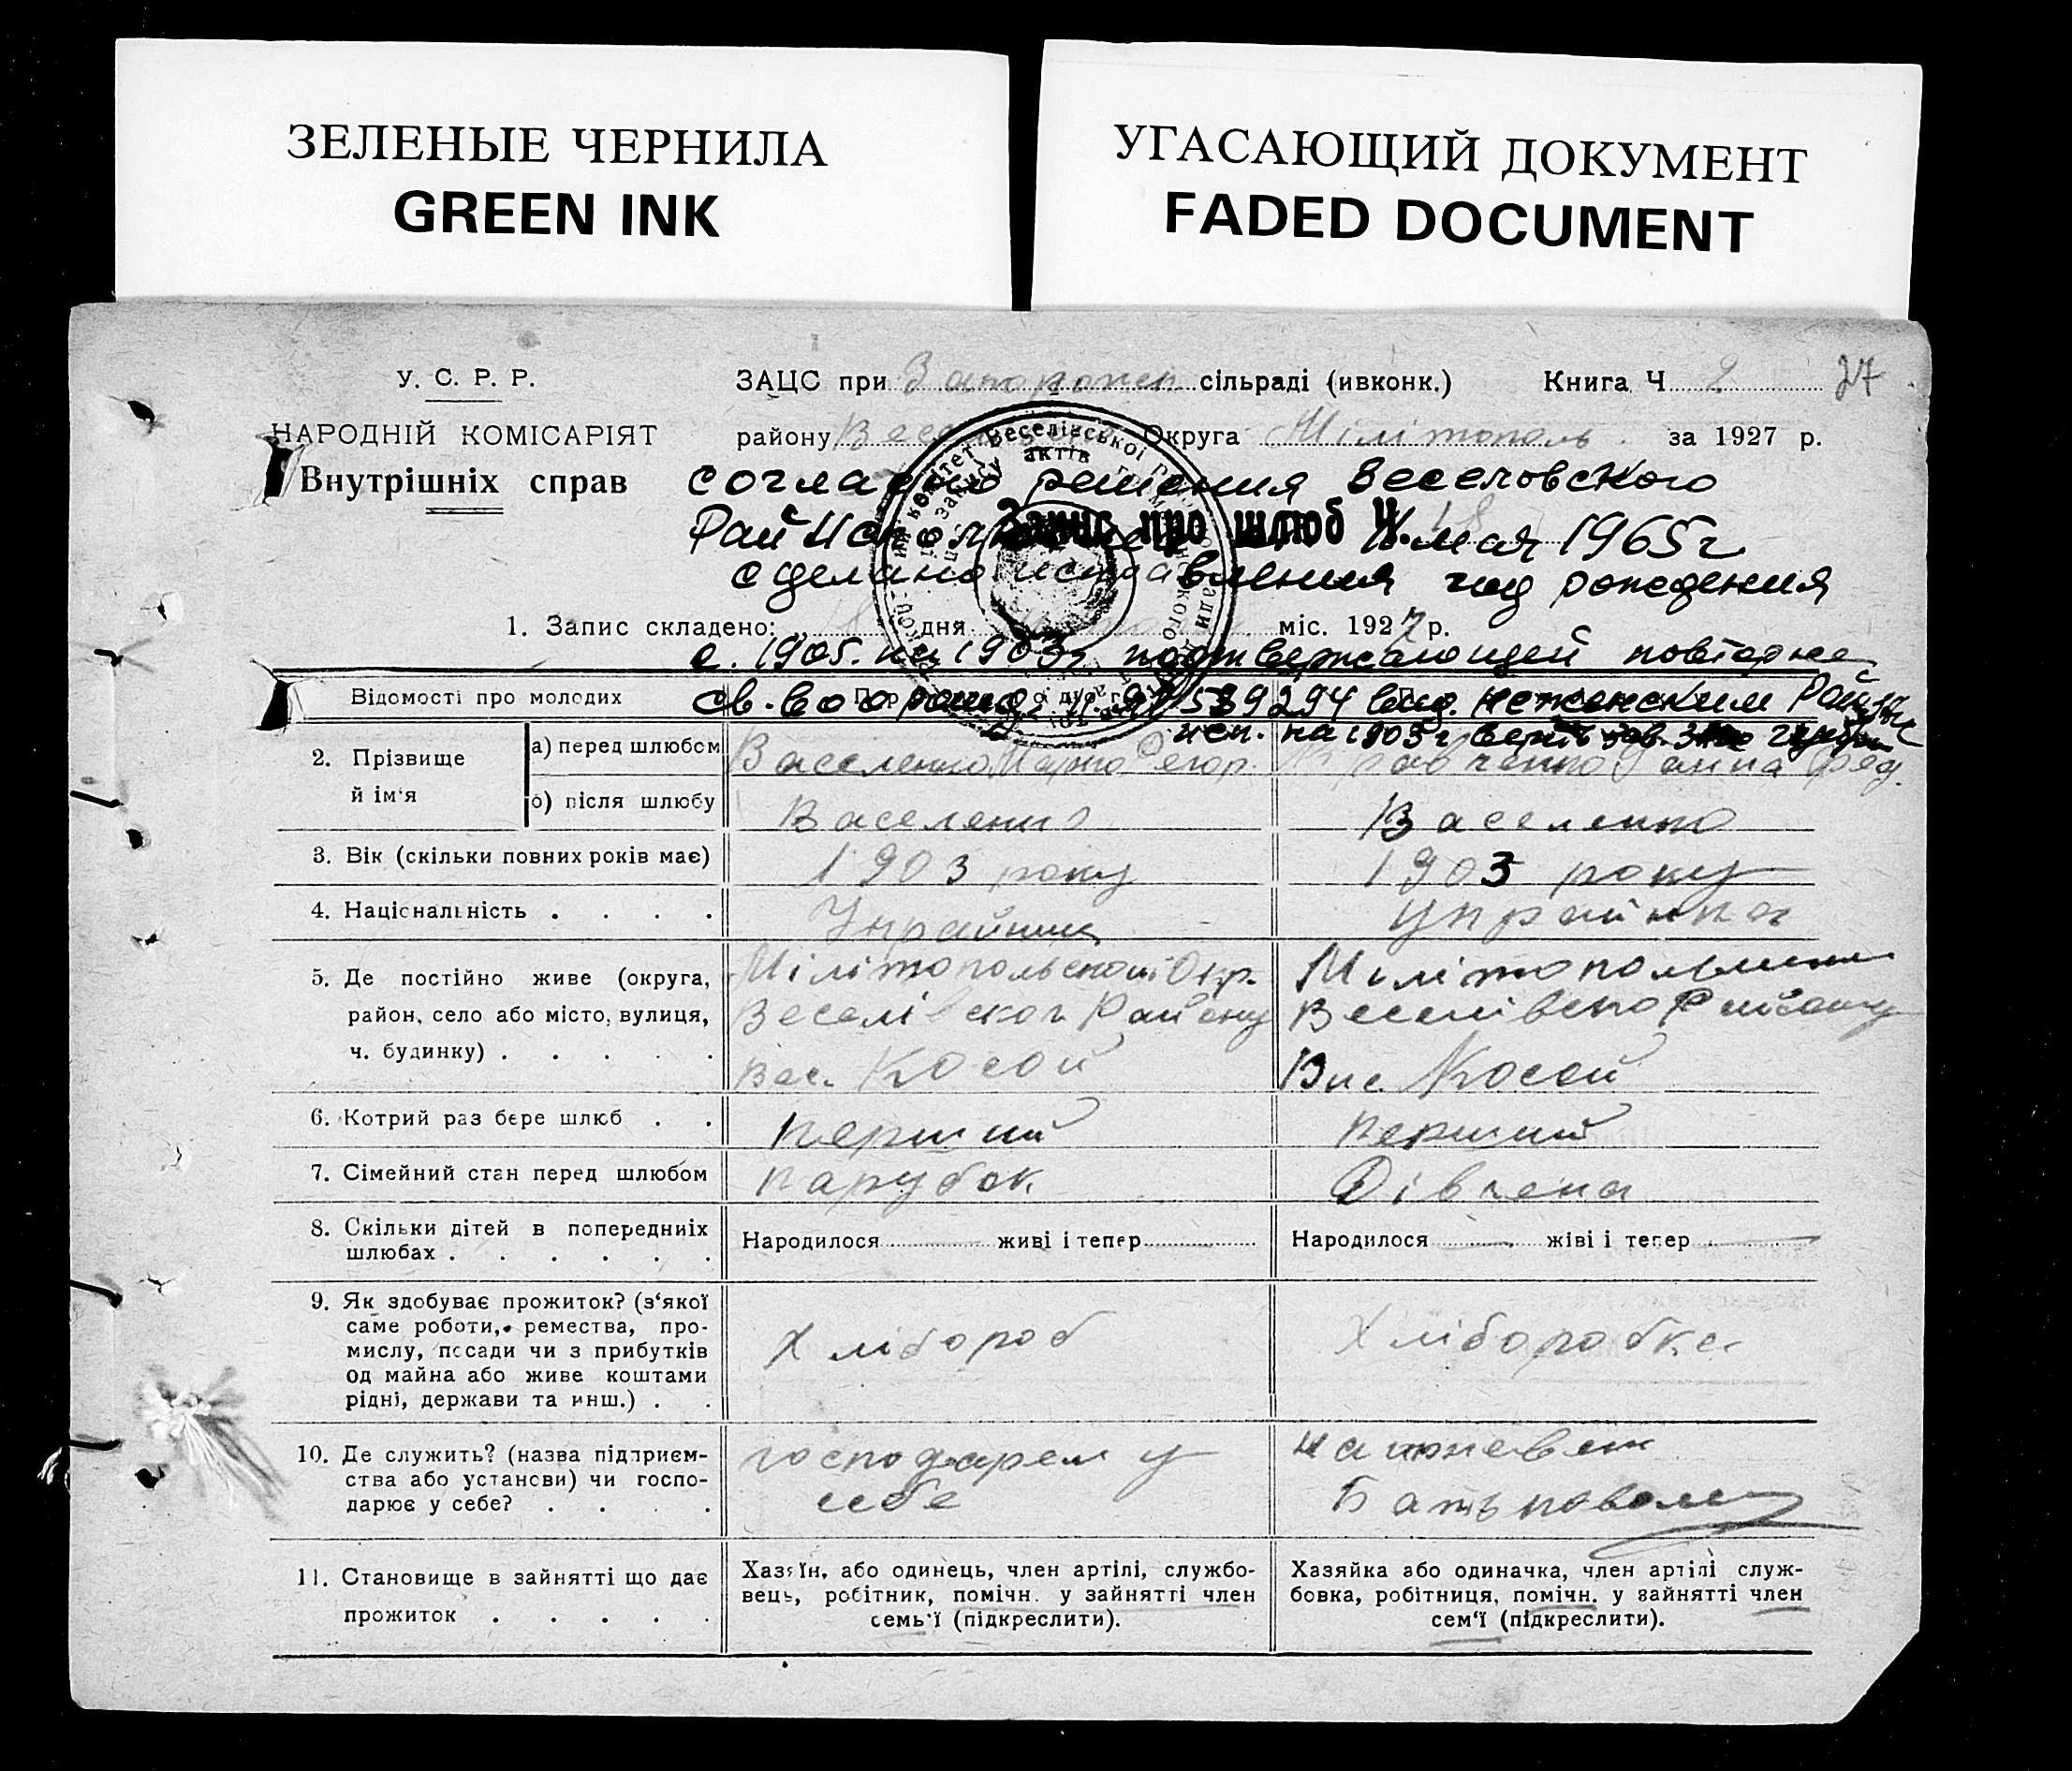 ЗЕЛЕНЫЕ ЧЕРНИЛА
GREEN INK
УГАСАЮЩИЙ ДОКУМЕНТ
FADED DOCUMENT
У. С. Р. Р.
НАРОДНІЙ КОМІСАРІЯТ
Внутрішніх справ
ЗАЦС при Запорожск сільраді (ивконк.) Книга Ч 2 27
району Округа Мілітополь за 1927 р.
согласно решения Веселовского
Запис про шлюб Ч. 18
мая 1965 г
сделано исправления год рождения
1. Запис складено: 18 дня міс. 1927 р.
с. 1905. на 1903г. подтвержающей повторне
Відомості про молодих
св-во о рожд. 589294 выд.
исп. на 1903 г верить
2. Прізвище й ім'я
а) перед шлюбом Васеленко Марко Егор. Кравченко Ганна Фед.
б) після шлюбу Васеленко Васеленко
3. Вік (скільки повних років має) 1903 року 1903 року
4. Національність . . . . Украйнец Украйнка
5. Де постійно живе (округа, район, село або місто, вулиця, ч. будинку) . . . . .
Мілітопольской Окр.
Веселівског Району Веселівско Району
Вис. Косой Вис. Косой
6. Котрий раз бере шлюб . . перший перший
7. Сімейний стан перед шлюбом парубок Дівчена
8. Скільки дітей в попередниіх шлюбах . . . . . .
Народилося живі і тепер Народилося живі і тепер
9. Як здобуває прожиток? (з'якої
саме роботи, ремества, про-
мислу, посади чи з прибутків
од майна або живе коштами
рідні, держави та инш.) . .
Хлібороб Хліборобка
10. Де служить? (назва підприєм-
ства або установи) чи госпо-
дарює у себе? . . . .
господарем у себе
Батьковом
11. Становище в зайнятті що дає
прожиток . . . . .
Хазяїн, або одинець, член артілі, службо-
вець, робітник, помічн. у зайнятті член
семь'ї (підкреслити).
Хазяйка або одиначка, член артілі служ-
бовка, робітниця, помічн. у зайнятті член
сем'ї (підкреслити).